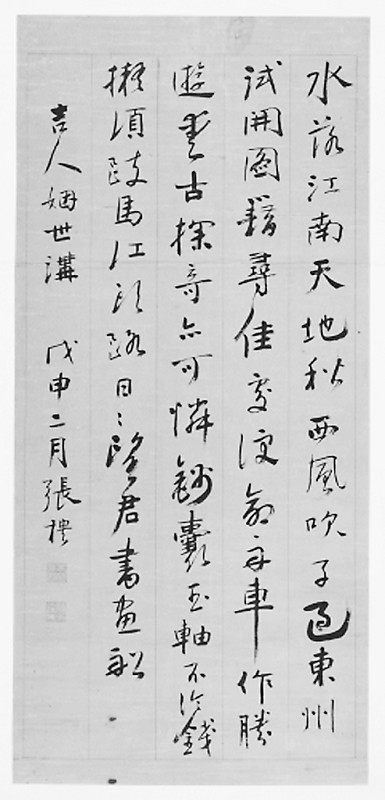 水落江南天地秋西風吹子過東州
試開圖籍尋佳處便命舟車作勝
遊愛古探奇亦可憐錦囊玉軸不論錢
擬須馬江頭路日日望君書畫船
吉人姻世講 戊申二月張